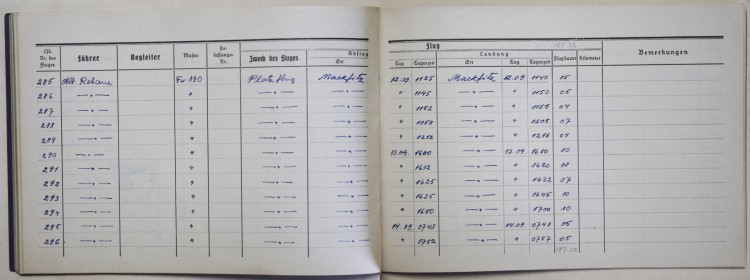 Lfd. Nr. des Fluges Führer Begleiter Muster Zu-lassungs-Nr. Zweck des Fluges Abflug Ort
Flug Tag Tageszeit Landung Ort Tag Tageszeit Flugdauer Kilometer Bemerkungen
285 Fw 190 Platzflug 12.09. 1125 12.09 1140 15
286 —"— " —"— —"— " 1145 —"— " 1150 05
287 —"— " —"— —"— " 1152 —"— " 04
288 —"— " —"— —"— " 1158 —"— " 1205 07
289 —"— " —"— —"— " 1212 —"— " 1216 04
290 —"— " —"— —"— 13.09. 1600 —"— 1610 10
291 —"— " —"— —"— " 1612 —"— " 1620 08
292 —"— " —"— —"— " 1625 —"— " 1632 07
293 —"— " —"— —"— " 1635 —"— " 1645 10
294 —"— " —"— —"— " 1650 —"— " 1700 10
295 —"— " —"— —"— 14.09. 0743 —"— 14.09. 0748 05
296 —"— " —"— —"— " 0752 —"— " 0757 05